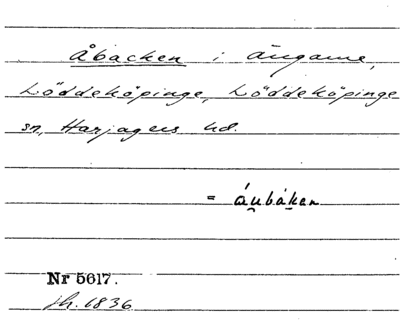 Åbacken i ängarne,
Löddeköpinge, Löddeköpinge
sn, Harjagers hd.
= áu̯bák̯en
Nr 5617.
jh. 1836